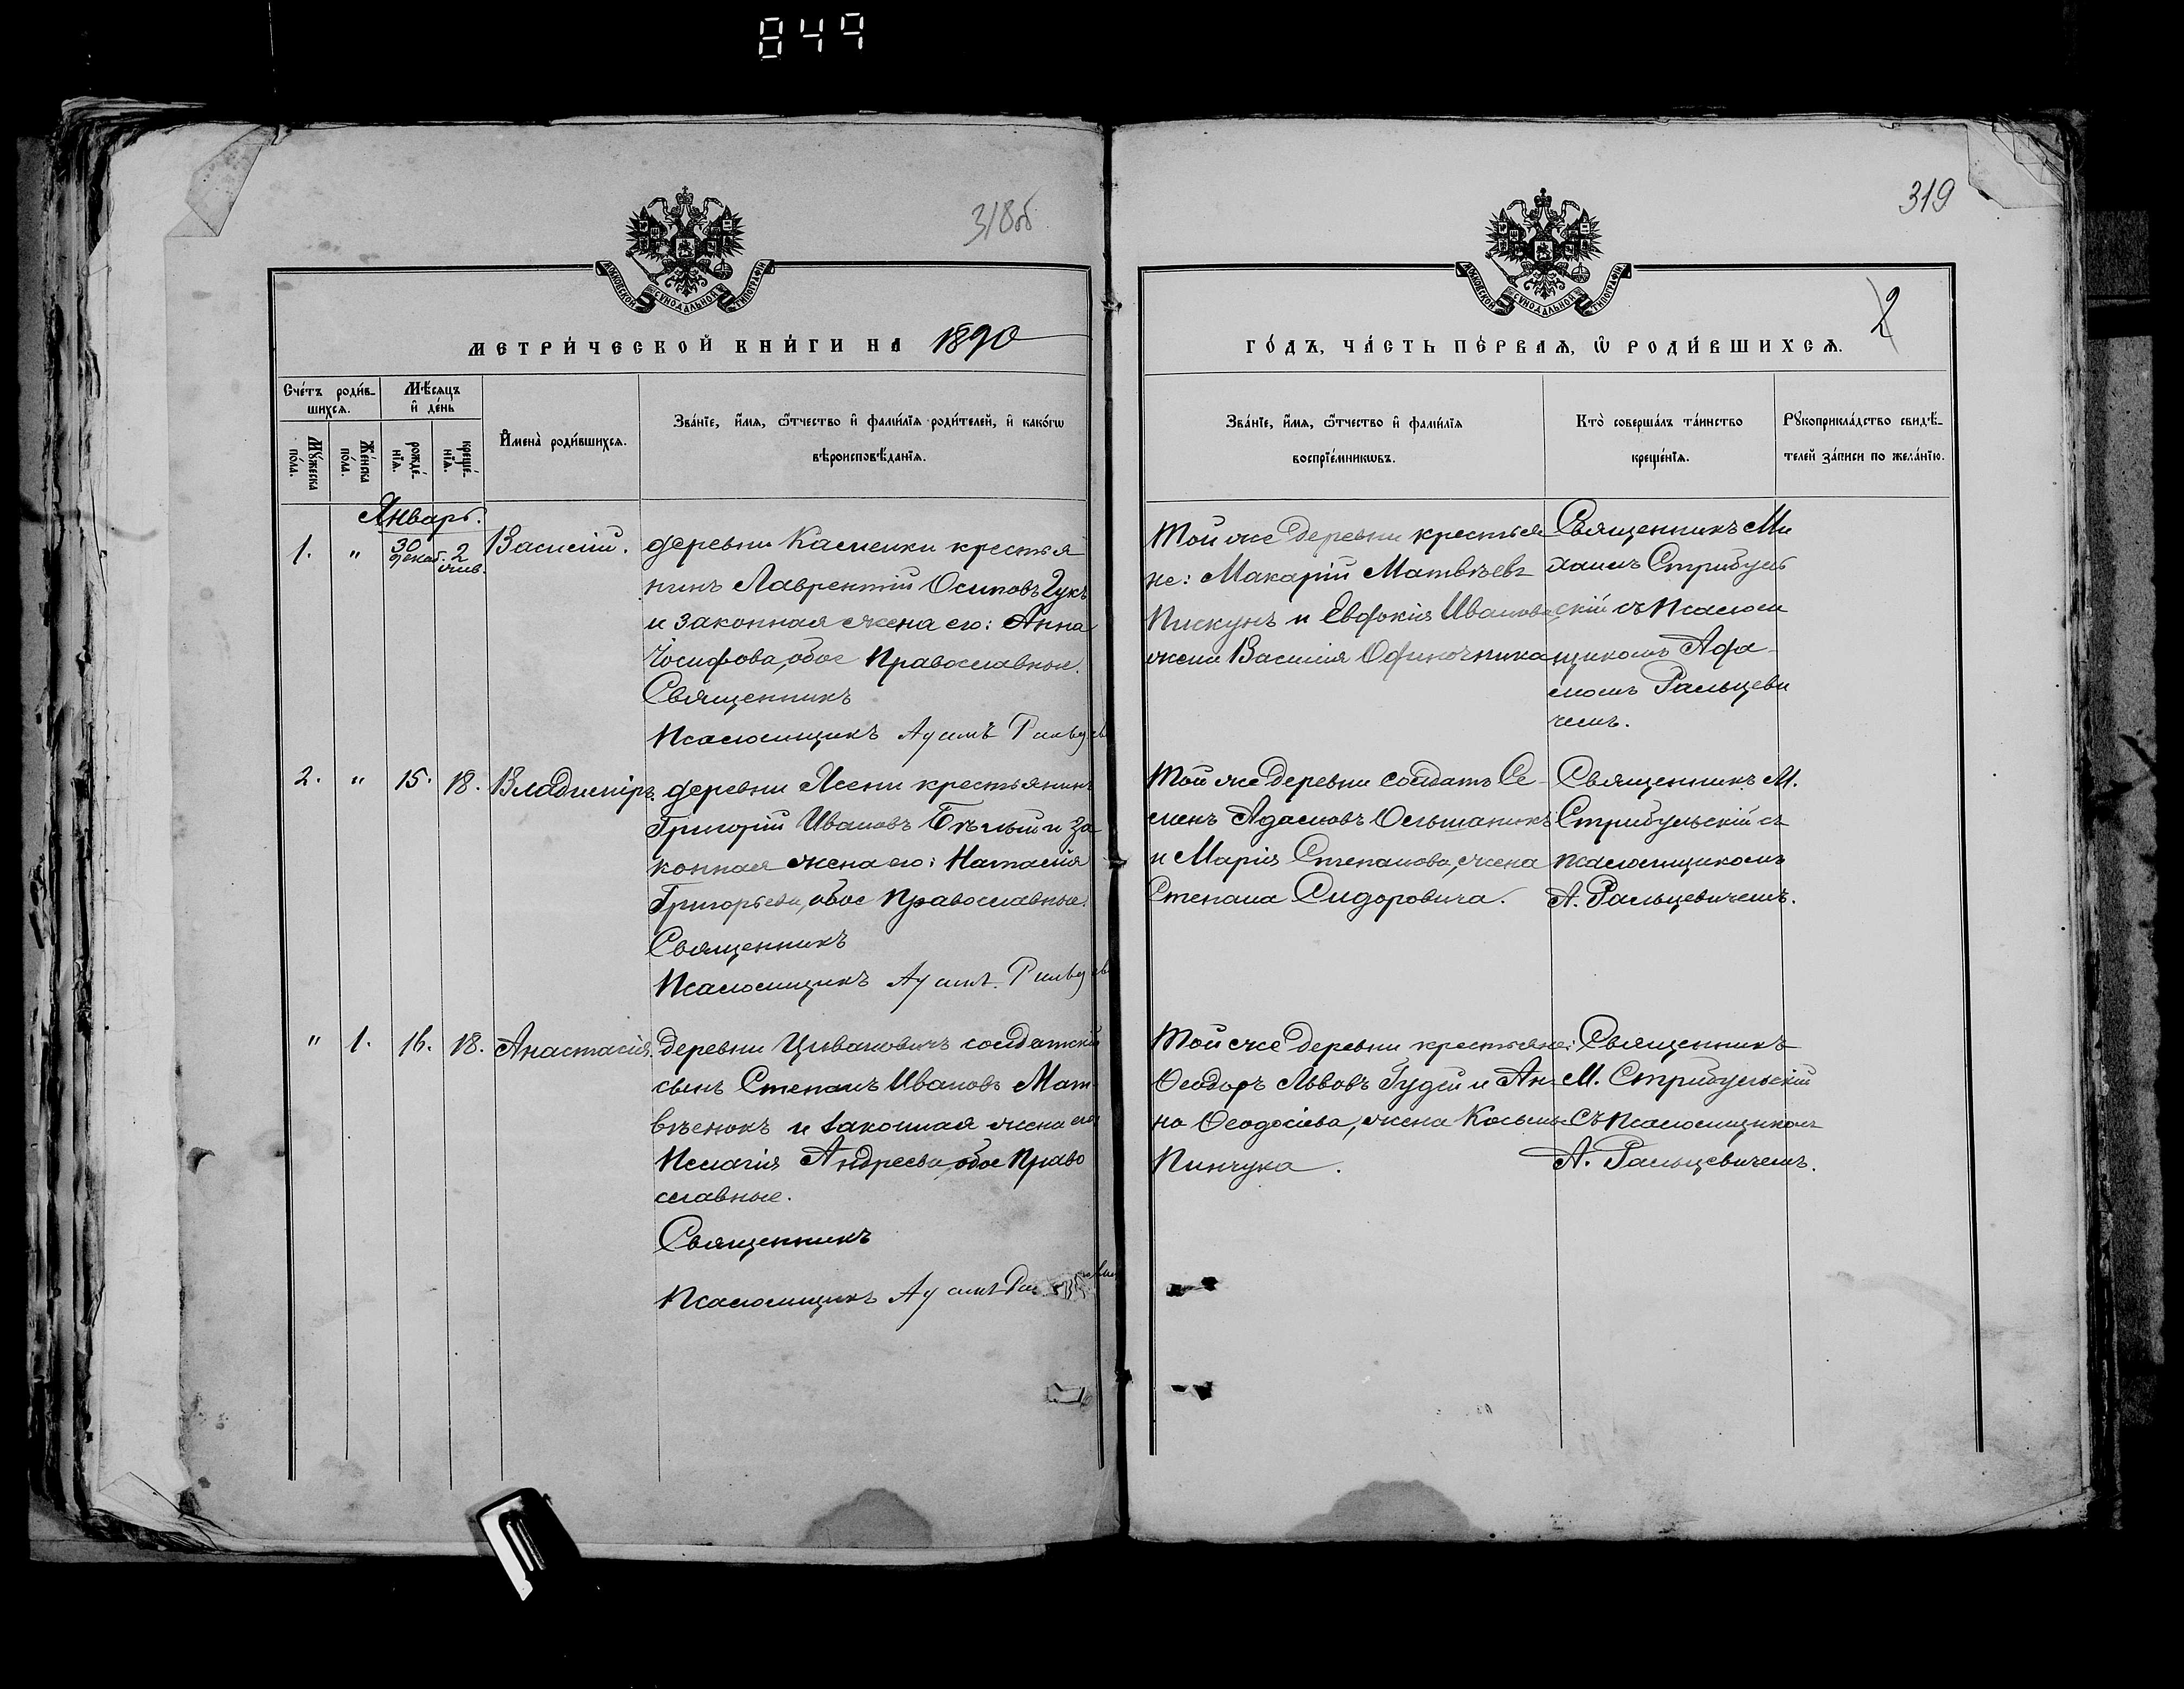 849
318об
319
МОСКОВСКОЙ СУНОДАЛЬНОЙ ТИПОГРАФІИ
МОСКОВСКОЙ СУНОДАЛЬНОЙ ТИПОГРАФІИ
2
МЕТРИ́ЧЕСКОЙ КНИ́ГИ НА 1890
ГО́ДЪ, ЧА́СТЬ ПЕ́РВАѦ, Ѡ҆ РОДИ́ВШИХСѦ.
Сче́тъ роди́в-
шихсѧ.
Мѣ́сѧцъ
и҆ де́нь
Мꙋ́жеска
по́ла.
Же́нска
по́ла.
рожде́-
нїѧ.
креще́-
нїѧ.
И҆мена̀ роди́вшихсѧ.
Зва́нїе, и҆́мѧ, ѻ҆́тчество и҆ фами́лїѧ роди́телей, и҆ како́гѡ
вѣроисповѣ́данїѧ.
Зва́нїе, и҆́мѧ, ѻ҆́тчество и҆ фами́лїѧ
воспрїе́мникѡвъ.
Кто̀ соверша́лъ та́инство
креще́нїѧ.
Рꙋкоприкла́дство свидѣ́-
телей за́писи по жела́нїю.
Январь.
1. " 30 декаб. 2 янв. Василій.
деревни Каменки крестья
нинъ Лаврентій Осиповъ Гукъ
и законная жена его: Анна
Іосифова, обое православные.
Священникъ
Псаломщикъ Адамъ
Той же деревни крестья
не: Макарій Матвѣевъ
Пискунъ и Евфокія Иванова
жена Василія Одиночника
Священникъ Ми
хаилъ Стрибуль
скій съ псалом
щикомъ Ада-
момъ Ральцеви
чемъ.
2. " 15. 18. Владиміръ.
деревни Ясени крестьянинъ
Григорій Ивановъ Бѣлый и за
конная жена его: Наталія
Григорьева, обое православные.
Священникъ
Псаломщикъ Адамъ
Той же деревни солдатъ Се-
менъ Адамовъ Ольшаникъ
и Марія Степанова, жена
Степана Сидоровича.
Священникъ М.
Стрибульскій съ
псаломщикомъ
А. Ральцевичемъ.
" 1. 16. 18. Анастасія.
деревни Цивановичъ солдатскій
сынъ Степанъ Ивановъ Мат-
вѣенокъ и законная жена его
Пелагія Андреева, обое право
славные.
Священникъ
Псаломщикъ Адамъ
Той же деревни крестьяне:
Ѳеодоръ Львовъ Гудій и Ан-
на Ѳеодосіева, жена Косьмы
Пинчука.
Священникъ
М. Стрибульскій
съ псаломщикомъ
А. Ральцевичемъ.